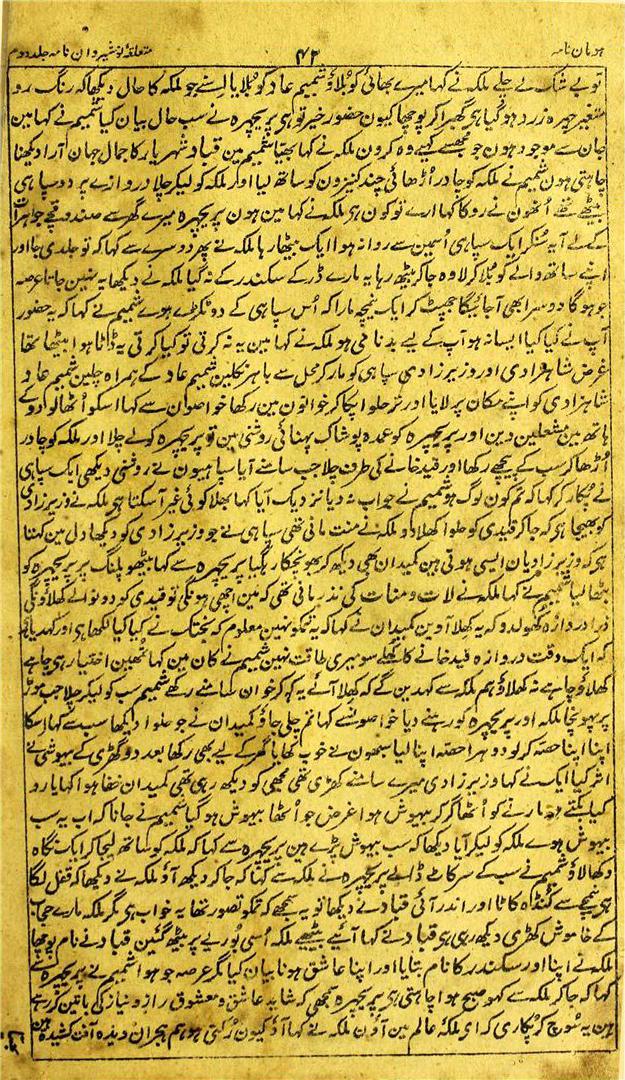 ہومان نامہ ۴۲ متعلقۂ نوشیروان نامہ جلد دوم
تو بے شک لے چلے ملکہ نے کہا میرے بھائی کو بلاؤ شمیم عاد کو بلایا اسنے جو ملکہ کا حال دیکھا کہ رنگ رو
متغیر چہرہ زرد ہو گیا ہی گھبرا کر پوچھا کیون حضور خیر تو ہی پریچہرہ نے سب حال بیان کیا شمیم نے کہا مین
جان سے موجود ہون جو مجھسے کہیے وہ کرون ملکہ نے کہا بھیّا شمیم مین قباد شہریار کا جمال جہان آرا دیکھنا
چاہتی ہون شمیم نے ملکہ کو چادر اُڑھائی چند کنیزون کو ساتھ لیا اور ملکہ کو لیکر چلا دروازے پر دو سپاہی
بیٹھے تھے اُنھون نے روکا کہا ارے تو کون ہی ملکہ نے کہا مین ہون پریچہرہ میرے گھر سے صندوقچے جواہرات
کے لے آ یہ سُنکر ایک سپاہی اُسمین سے روانہ ہوا ایک بیٹھا رہا ملکہ نے پھر دوسرے سے کہا کہ تو جلدی جا اور
اپنے ساتھ والے کو بلا کر لا وہ جا کر بیٹھ رہا یہ مارے ڈر کے سکندر کے نہ گیا ملکہ نے دیکھا یہ نہین جاتا عرصہ
جو ہوگا دوسرا بھی آ جائیگا جھپٹ کر ایک نیمچہ مارا کہ اُس سپاہی کے دو ٹکڑے ہوے شمیم نے کہا کہ یہ حضور
آپ نے کیا کیا ایسا نہ ہو آپ کے لیے بدنامی ہو ملکہ نے کہا مین یہ نہ کرتی تو کیا کرتی یہ ڈاٹا ہوا بیٹھا تھا
غرض شاہزادی اور وزیرزادی سپاہی کو مار کر محل سے باہر نکلین شمیم عاد کے ہمراہ چلین شمیم عاد
شاہزادی کو اپنے مکان پر لایا اور تر حلوا پکا کر خوانون مین رکھا خواصون سے کہا اسکو اُٹھا لو دو کے
ہاتھ مین مشعلین دین اور پریچہرہ کو عمدہ پوشاک پہنائی روشنی مین تو پریچہرہ کو لے چلا اور ملکہ کو چادر
اُڑھا کر سب کے پیچھے رکھا اور قید خانے کی طرف چلا جب سامنے آیا سپاہیون نے روشنی دیکھی ایک سپاہی
نے پکار کر کہا کہ تم کون لوگ ہو شمیم نے جواب نہ دیا نزدیک آیا کہا بھلا کوئی غیر آ سکتا ہی ملکہ نے وزیرزادی
کو بھیجا ہی کہ جا کر قیدی کو حلوا کھلا دو ملکہ نے منت مانی تھی سپاہی نے جو وزیرزادی کو دیکھا دل مین کہتا
ہی کہ وزیرزادیان ایسی ہوتی ہین کمیدان بھی دیکھ کر بھونچکا رہگیا پریچہرہ سے کہا بیٹھو پلنگ پر پریچہرہ کو
بٹھا لیا شمیم نے کہا ملکہ نے لات و منات کی نذر مانی تھی کہ مین اچھی ہونگی تو قیدی کو دو نوالے کھلاؤنگی
ذرا دروازہ کھولدو کہ یہ کھلا آوین کمیدان نے کہا کہ یہ تمکو نہین معلوم کہ بختک نے کیا کیا لکھا ہی اور کہدیا ہی
کہ ایک وقت دروازہ قید خانے کا کھلے سو میری طاقت نہین شمیم نے کان مین کہا تمھین اختیار ہی چاہے
کھلاؤ چاہے نہ کھلاؤ ہم ملکہ سے کہدین گے کہ کھلا آئے یہ کہکر خوان سامنے رکھے شمیم سب کو لیکر چلا جب موڑ
پر پہونچا ملکہ اور پریچہرہ کو رہنے دیا خواصونسے کہا تم چلی جاؤ کمیدان نے جو حلوا دیکھا سب سے کہا اسکا
اپنا اپنا حصہ کر لو دوہرا حصّہ اپنا لیا سبھون نے خوب کھایا گھر کے لیے بھی رکھا بعد دو گھڑی کے بیہوشی نے
اثر کیا ایک نے کہا وزیرزادی میرے سامنے کھڑی تھی مجھی کو دیکھ رہی تھی کمیدان خفا ہوا کہا یارو
کیا بکتے ہو مارنے کو اُٹھا گر کر بیہوش ہوا غرض جو اُٹھا بیہوش ہو گیا شمیم نے جانا کہ اب یہ سب
بیہوش ہوے ملکہ کو لیکر آیا دیکھا کہ سب بیہوش پڑے ہین پریچہرہ سے کہا کہ ملکہ کو ساتھ لیجا کر ایک نگاہ
دکھا لاؤ شمیم نے سب کے سر کاٹ ڈالے پریچہرہ نے ملکہ سے کہا کہ جا کر دیکھ آؤ ملکہ نے دیکھا کہ قفل لگا
ہی نیمچے سے کُنڈا کاٹا اور اندر آئی قباد نے دیکھا تو یہ سمجھے کہ تمکو تصور تھا یہ خواب ہی مگر ملکہ مارے حجاب
کے خاموش کھڑی دیکھ رہی ہی قباد نے کہا آئیے بیٹھیے ملکہ اُسی بوریے پر بیٹھ گئین قباد نے نام پوچھا
ملکہ نے اپنا اور سکندر کا نام بتایا اور اپنا عاشق ہونا بیان کیا مگر عرصہ جو ہوا شمیم نے پریچہرہ سے
کہا کہ جا کر ملکہ سے کہو صبح ہوا چاہتی ہی پریچہرہ سمجھی کہ شاید عاشق و معشوق راز و نیاز کی باتین کر رہے
ہین یہ سوچ کر پکاری کہ ای ملکۂ عالم مین آؤن ملکہ نے کہا آؤ کیون رُکتی ہو ہم ہجران دیدہ آفت کشیدہ ہین